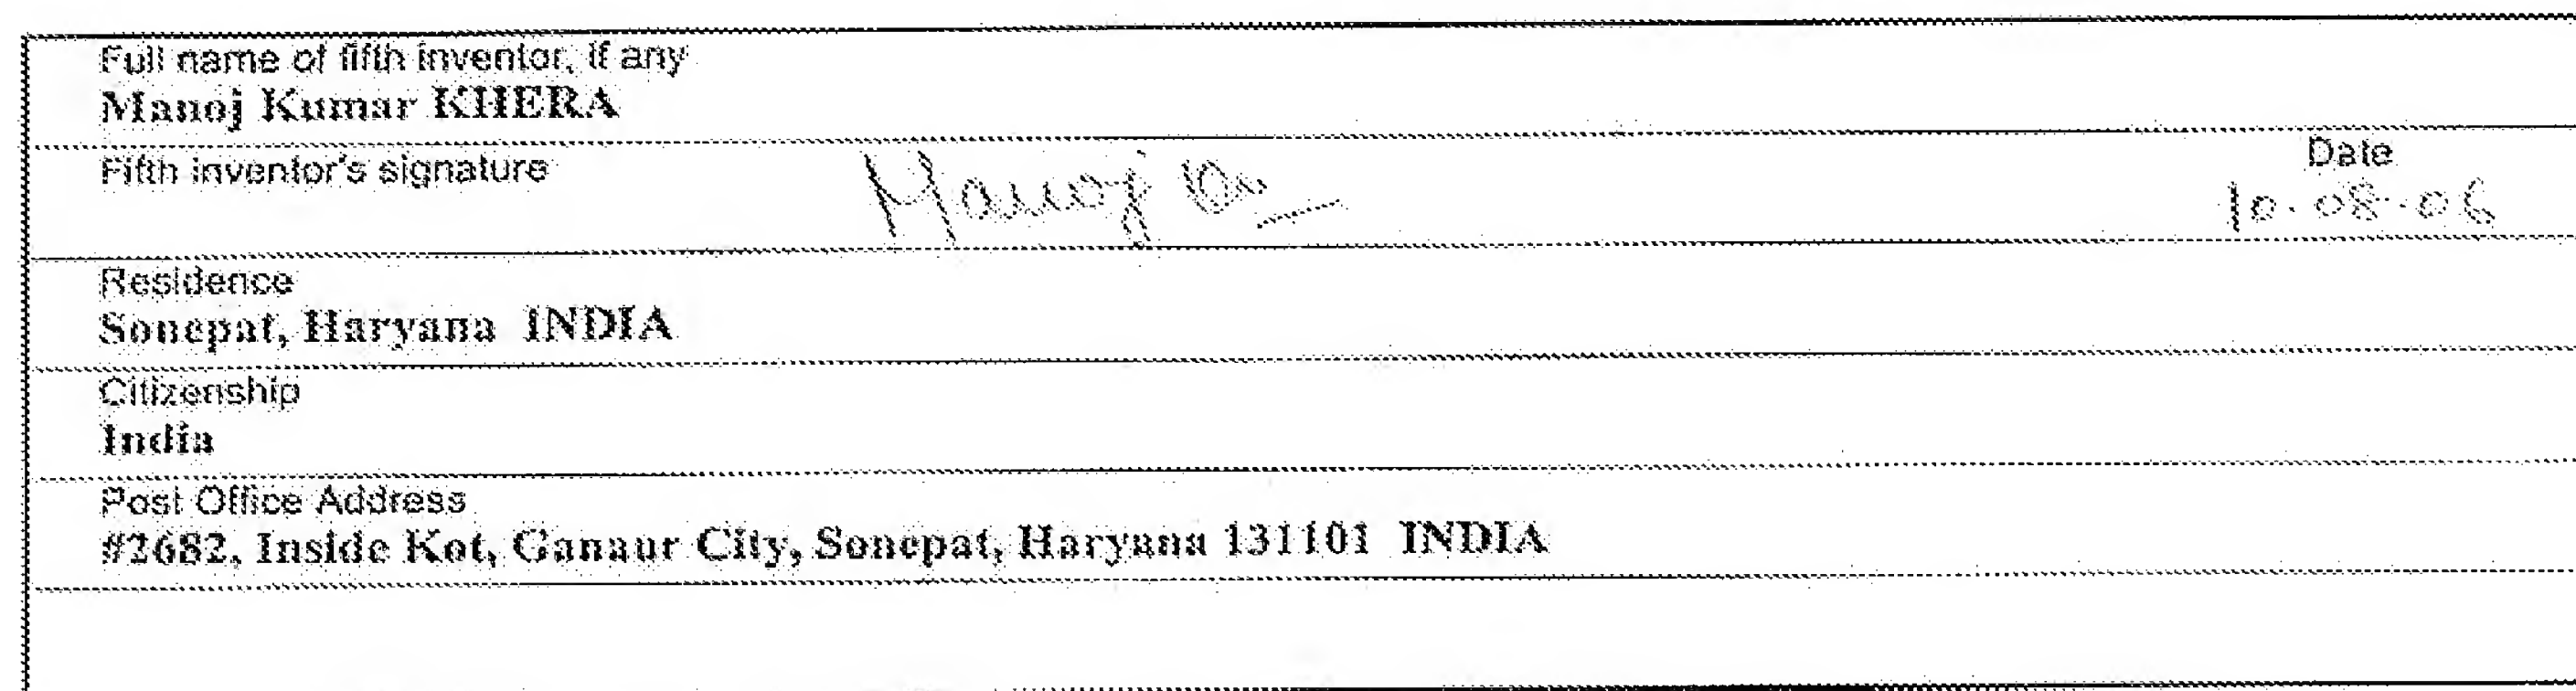 Full name of fifth inventor, if any
Manoj Kumar KHERA
Fifth inventor's signature
Manoj
Date
10.08.06
Residence
Sonepat, Haryana INDIA
Citizenship
India
Post Office Address
#2682, Inside Kot, Ganaur City, Sonepat, Haryana 131101 INDIA